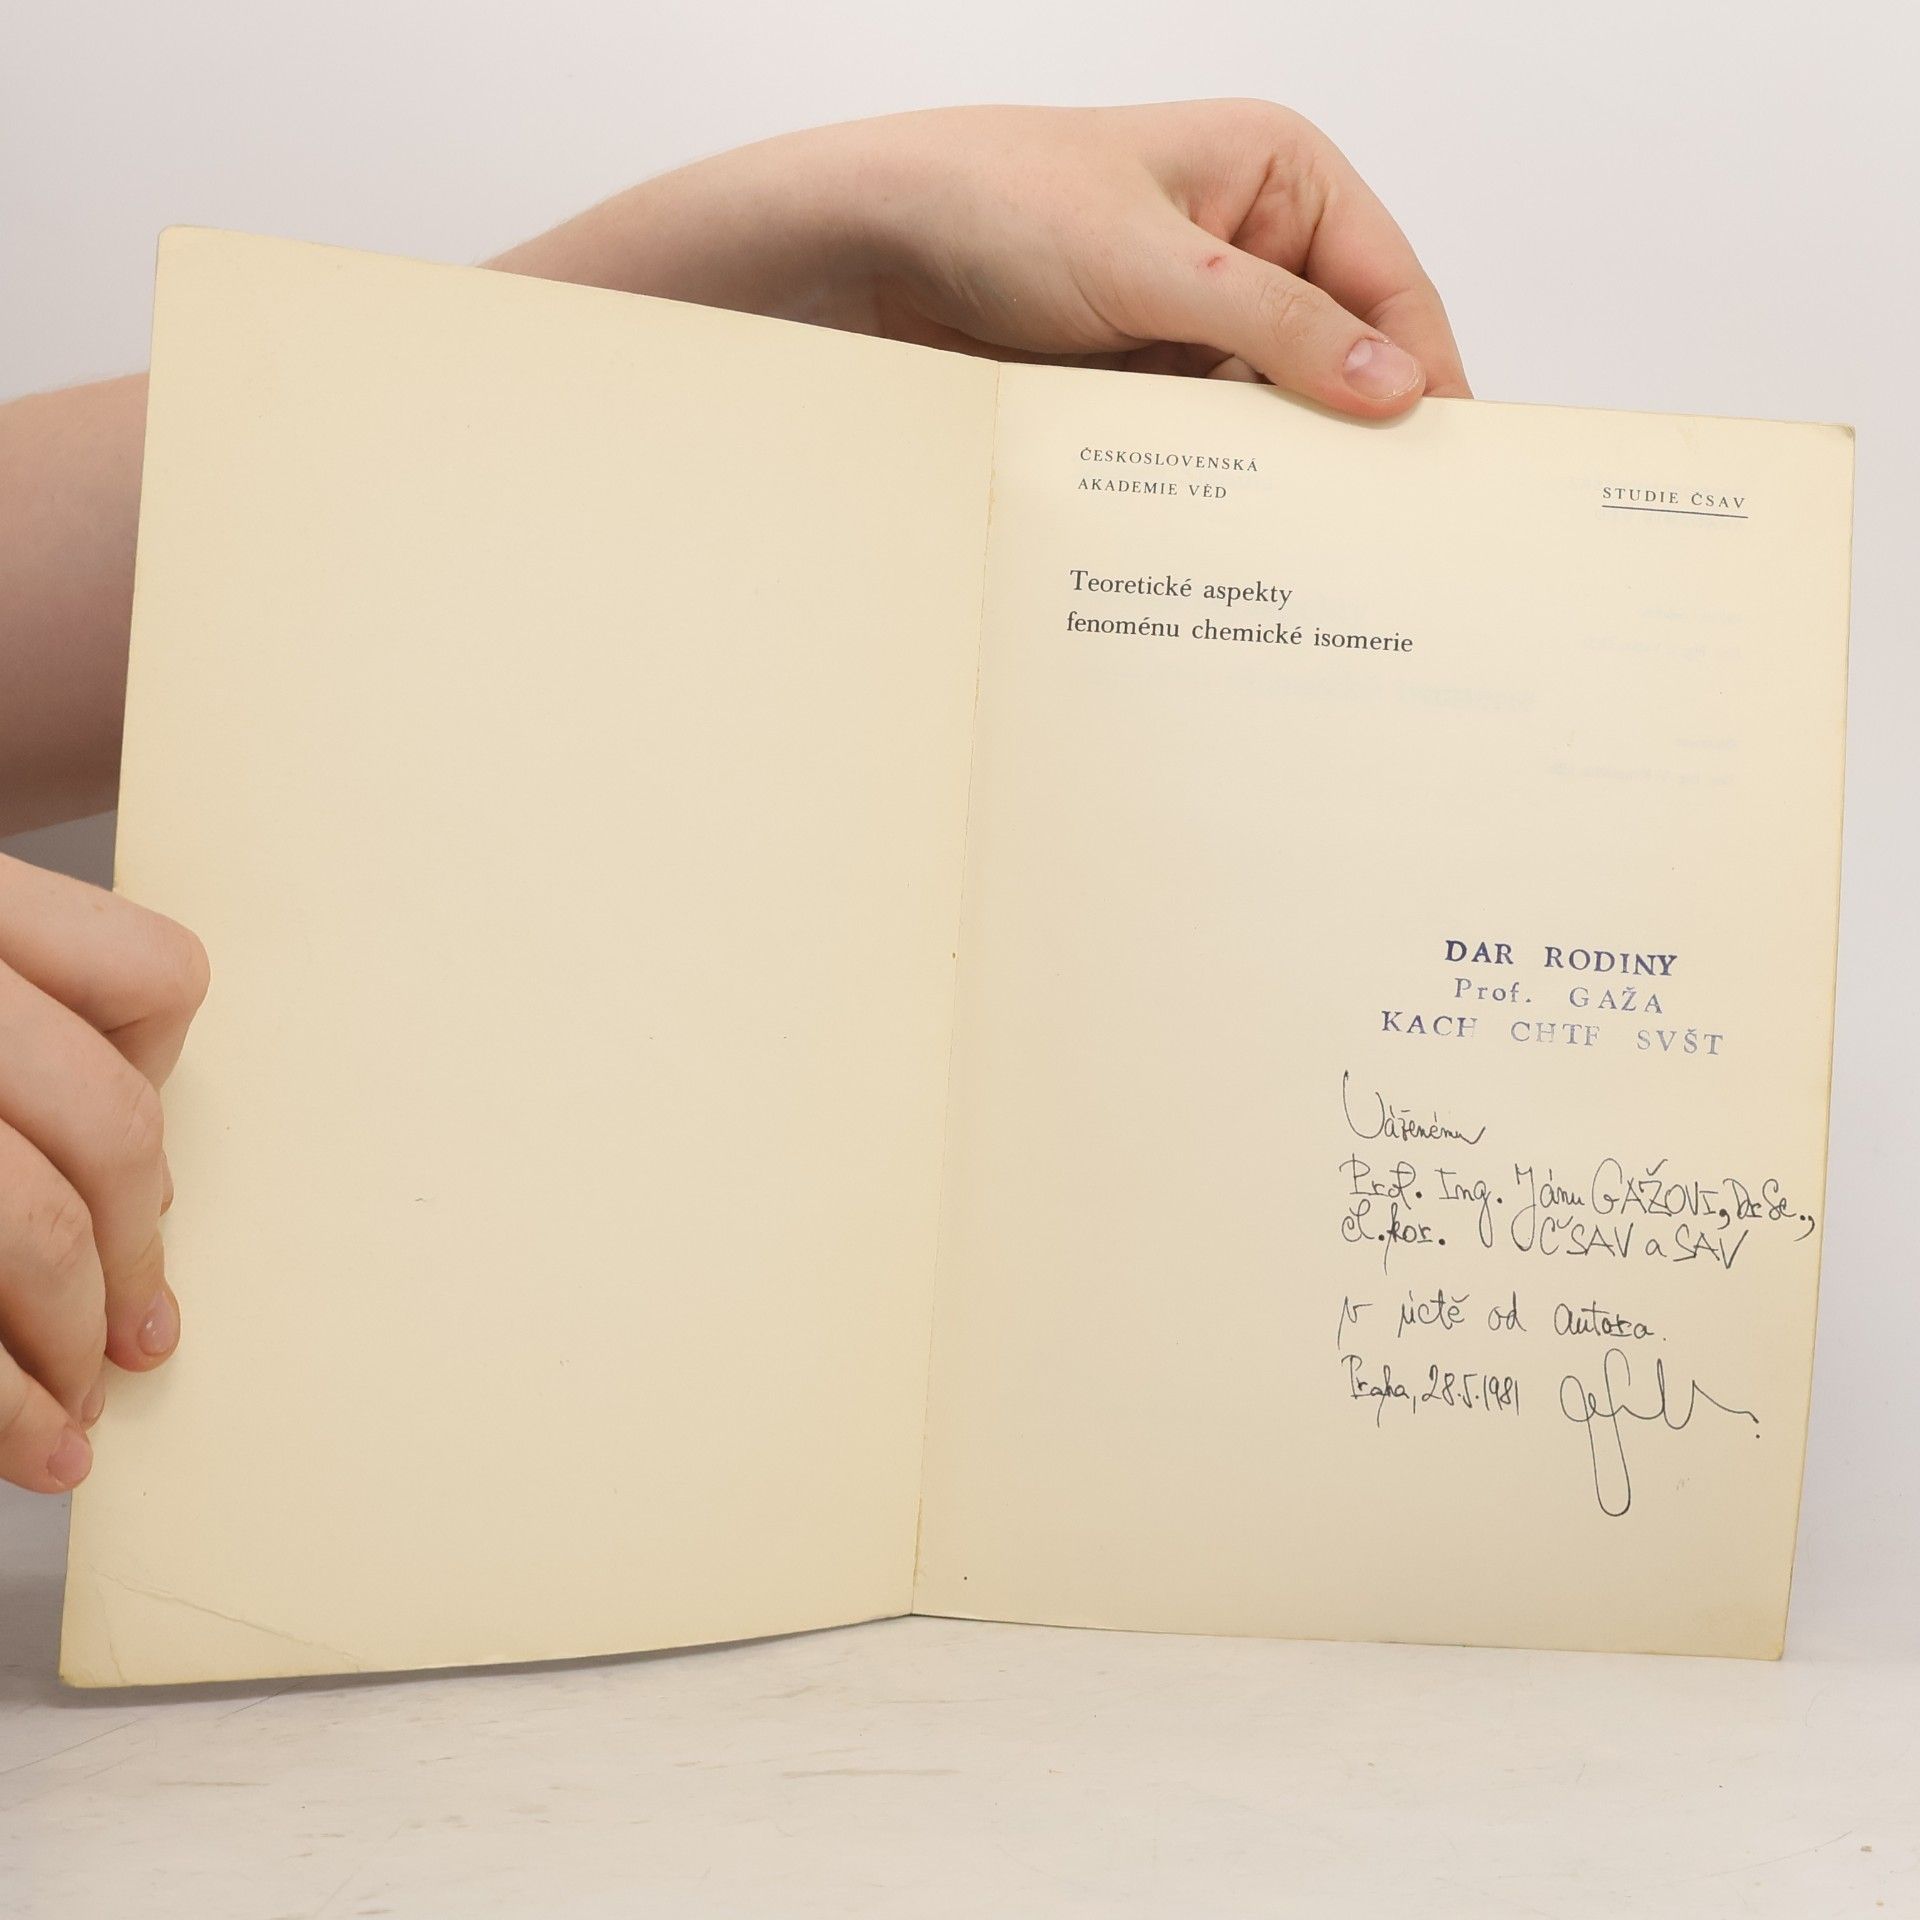 ČESKOSLOVENSKÁ
AKADEMIE VĚD
STUDIE ČSAV
Teoretické aspekty
fenoménu chemické isomerie
DAR RODINY
Prof. GAŽA
KACH CHTF SVŠT
Váženému
Prof. Ing. Jánu GAŽOVI, DrSc.,
čl. kor. ČSAV a SAV
v úctě od autora.
Praha, 28.5.1981